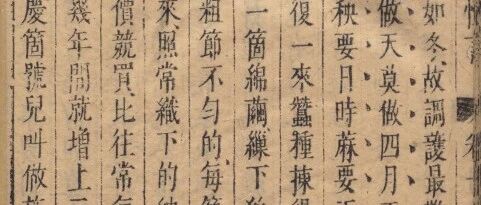 如冬故調護最
做天莫做四月
秧要日時蔴要
復一來蠶種揀得
一箇綿繭繅下
粗節不勻的每
來照常織下的
價競買比往常
幾年間就增上三
慶箇號兒叫做